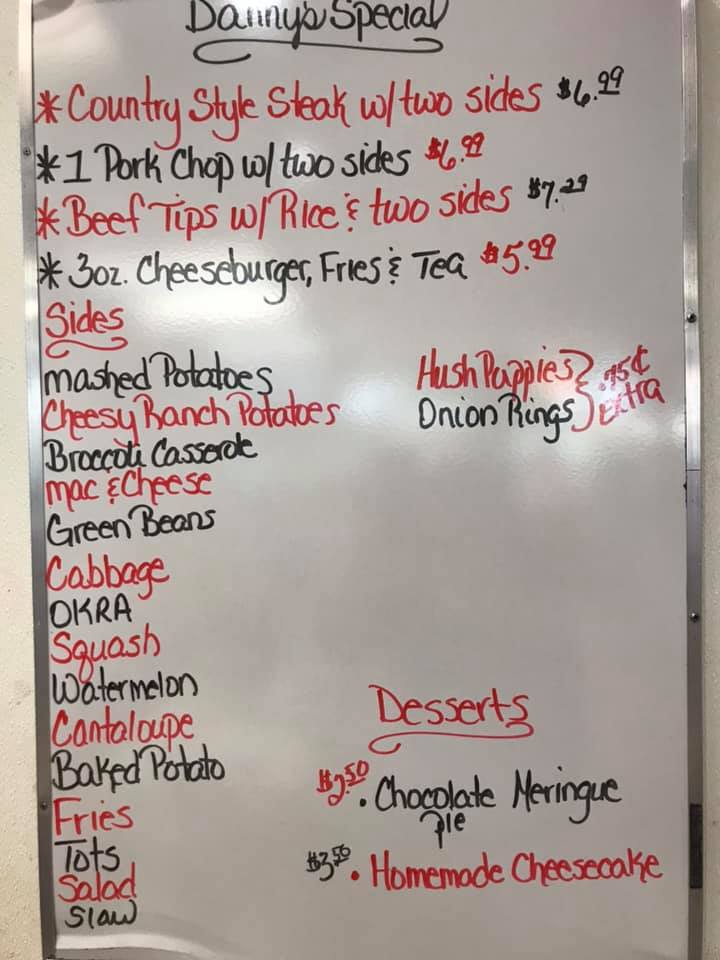 Danny's Special
* Country Style Steak w/ two sides $6.99
* 1 Pork Chop w/ two sides $6.99
* Beef Tips w/ Rice & two sides $7.29
* 3oz. Cheeseburger, Fries & Tea $5.99
Sides
mashed Potatoes
Cheesy Ranch Potatoes
Broccoli Casserole
mac & Cheese
Green Beans
Cabbage
OKRA
Squash
Watermelon
Cantaloupe
Baked Potato
Fries
Tots
Salad
Slaw
Hush Puppies
Onion Rings
.75¢
Extra
Desserts
$2.50 • Chocolate Meringue
Pie
$3.50 • Homemade Cheesecake